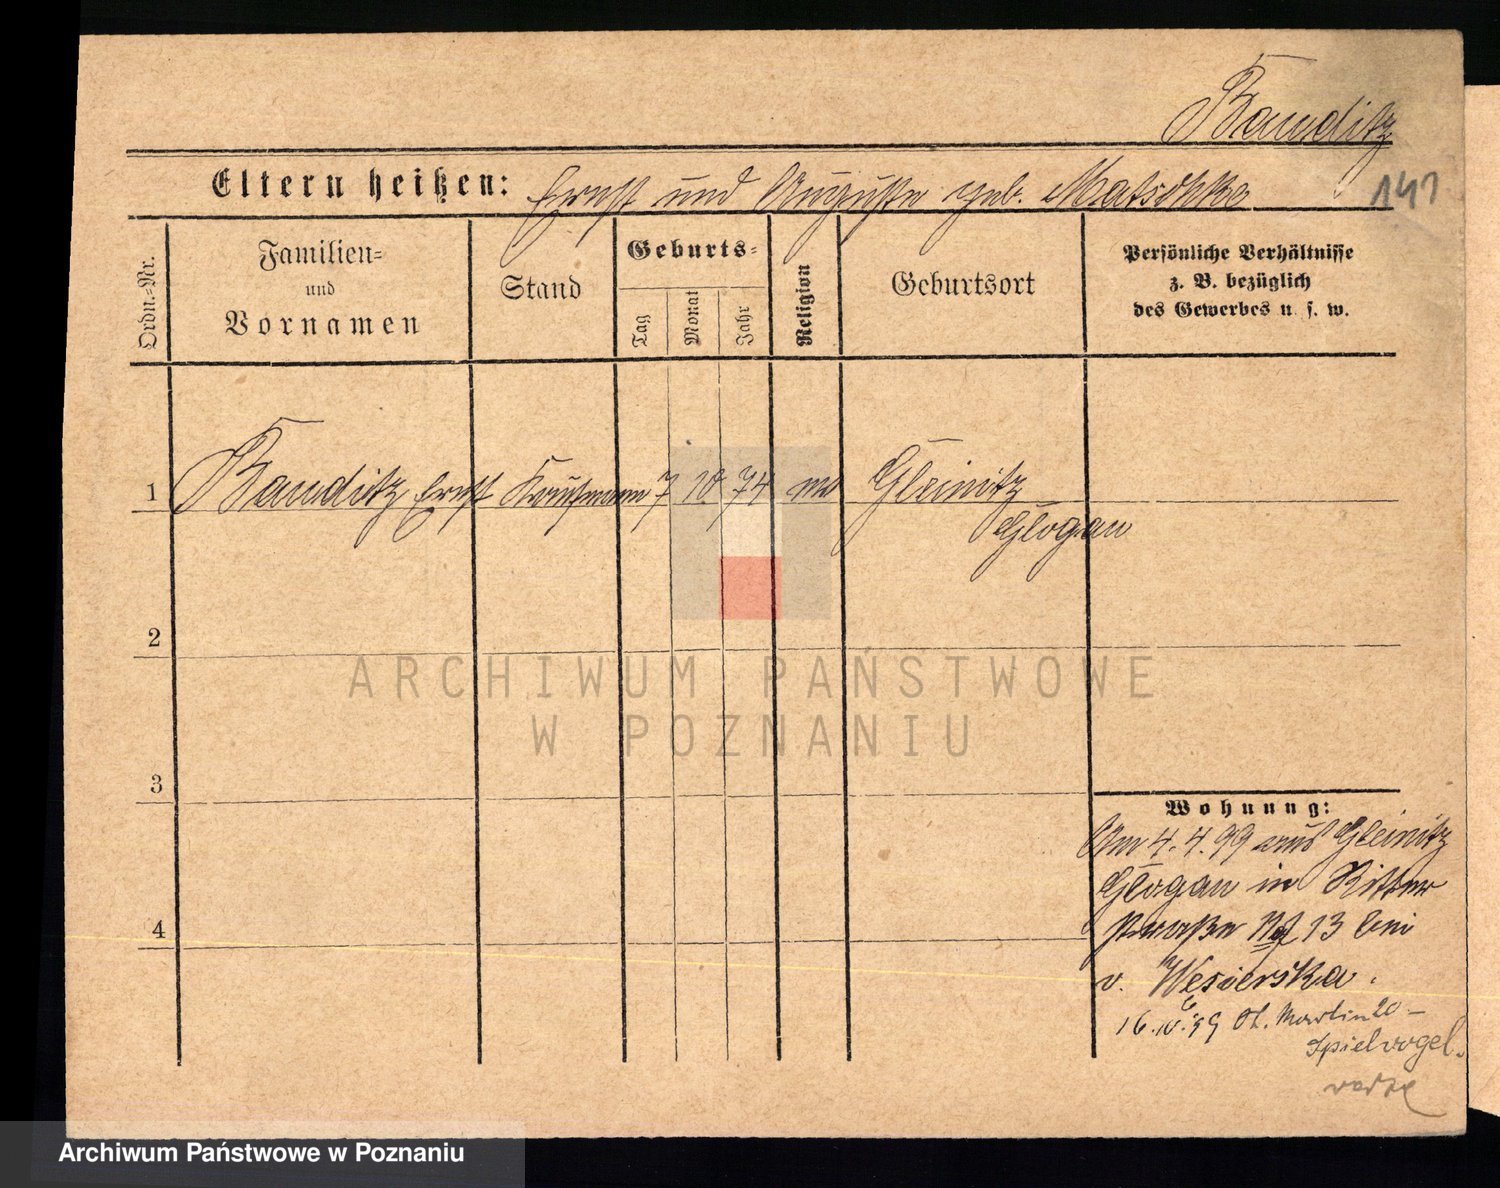 Bauditz
141
Eltern heißen: Ernst und Auguste geb. Matschke
Ordn.-Nr.
Familien-
und
Vornamen
Stand
Geburts-
Tag
Monat
Jahr
Religion
Geburtsort
Persönliche Verhältnisse
z. B. bezüglich
des Gewerbes u. s. w.
1 Bauditz Ernst Kaufmann 7 10 74 ev Gleinitz
Glogau
2
3
4
Wohnung:
Am 4.4.99 aus Gleinitz
Glogau in Ritter
straße 13 bei
v. Wesierska.
16. 99 St. Martin 20 –
Spielvogel.
ARCHIWUM PAŃSTWOWE
W POZNANIU
Archiwum Państwowe w Poznaniu